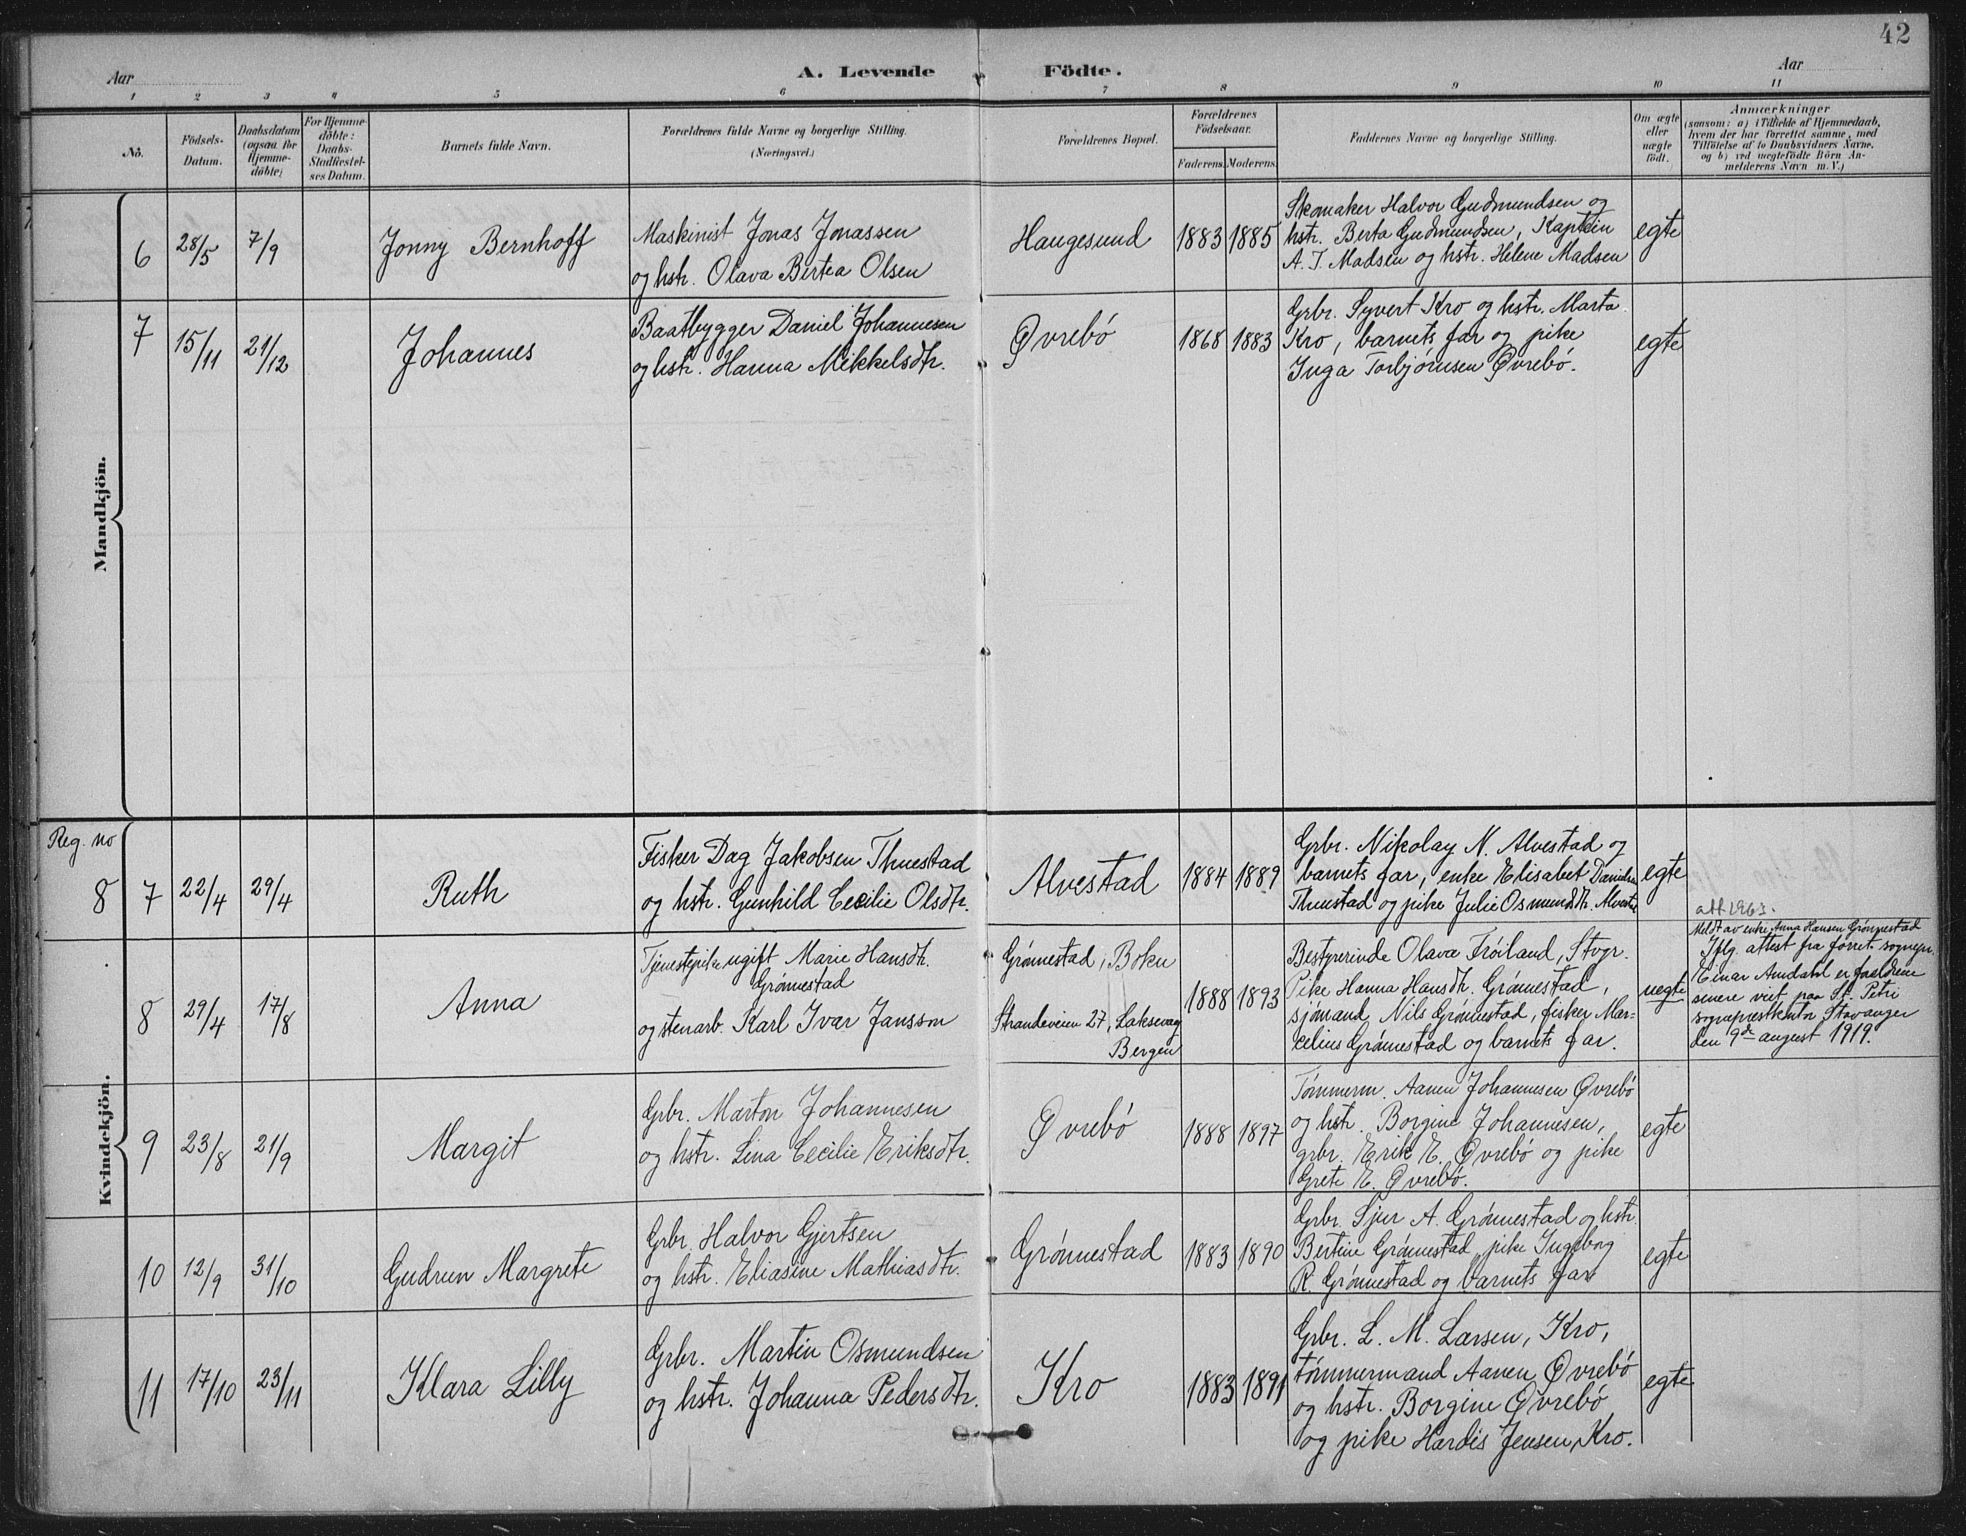 42
Aar
A. Levende
Födte.
Aar
1 2 3 4 5 6 7 8 9 10 11
No.
Födsels-
Datum.
Daabsdatum
(ogsaa for
Hjemme-
döbte)
For Hjemme-
döbte:
Daabs-
Stadfæstel-
ses Datum.
Barnets fulde Navn.
Forældrenes fulde Navne og borgerlige Stilling.
(Næringsvei.)
Forældrenes Bopæl.
Forældrenes
Födselsaar.
Faderens. Moderens.
Faddernes Navne og borgerlige Stilling.
Om ægte
eller
uægte
födt.
Anmærkninger
(saasom: a) i Tilfælde af Hjemmedaab,
hvem der har forrettet samme, med
Tilföielse af to Daabsvidners Navne.
og b) ved uægtefödte Börn An-
melderens Navn m. V.)
Mandkjön.
6
28/5
7/9
Jonny Bernhoff
Maskinist Jonas Jonassen
og hstr. Olava Bertea Olsen
Haugesund
1883
1885
Skomaker Halvor Gudmundsen og
hstr. Berta Gudmundsen, Kaptein
A. T. Madsen og hstr. Helene Madsen
egte
7
15/11
21/12
Johannes
Baatbygger Daniel Johannesen
og hstr. Hanna Mikkelsdtr.
Øvrebó
1868
1883
Grbr. Syvert Kro og hstr. Marta
Kro, barnets far og pike
Inga Torbjörnsen Øvrebó.
egte
Kvindekjön.
Reg. no
8
7
22/4
29/4
Ruth
Fisker Dag Jakobsen Thuestad
og hstr. Gunhild Cecilie Olsdtr.
Alvestad
1884
1889
Grbr. Nikolay N. Alvestad og
barnets far, enke Elisabet Danielsen
Thuestad og pike Julie Osmundsdtr. Alvestad
egte
8
29/4
17/8
Anna
Tjenestepike ugift Marie Hansdtr.
Grónnestad
og stenarb. Karl Ivar Jansson
Grónnestad, Bokn
Strandeveien 27, Laksevag
Bergen
1888
1893
Bestyrerinde Olava Fróiland, Stvgr.
Pike Hanna Hansdtr. Grónnestad,
sjómand Nils Grónnestad, fisker Mar=
cilius Grónnestad og barnets far.
uegte
att 1963.
Meldt av enke Anna Hansen Grónnestad
Iflg. attest fra forret. sognepr.
Einar Amdahl er foreldrene
senere viet paa St. Petri
sogneprestkontor Stavanger
den 9de august 1919.
9
23/8
21/9
Margit
Grbr. Marton Johannesen
og hstr. Lina Cecilie Eriksdtr.
Øvrebó
1888
1897
Tómmerm. Aanen Johannesen Øvrebó
og hstr. Borgine Johannesen,
grbr. Erik E. Øvrebó og pike
Grete E. Øvrebó.
egte
10
12/9
31/10
Gudrun Margrete
Grbr. Halvor Gjertsen
og hstr. Eliasine Mathiasdtr.
Grónnestad
1883
1890
Grbr. Sjur A. Grónnestad og hstr.
Bertine Grónnestad, pike Ingeborg
R. Grónnestad og barnets far
egte
11
17/10
23/11
Klara Lilly
Grbr. Martin Osmundsen
og hstr. Johanna Pedersdtr.
Kro
1883
1891
Grbr. L. M. Larsen, Kro,
tómmermand Aanen Øvrebó
og hstr. Borgine Øvrebó
og pike Hardis Jensen Kro.
egte